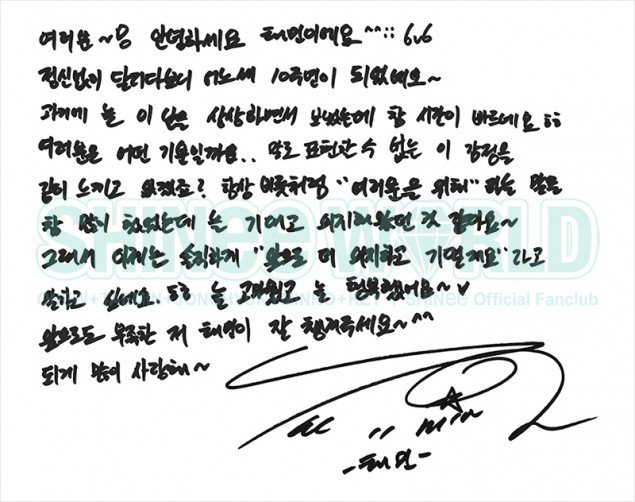 여러분~ 안녕하세요 태민이에요^^;; 6v6
정신없이 달리다보니 어느새 10주년이 되었네요~
과거에 늘 이 날을 상상하면서 보냈는데 참 시간이 빠르네요 ㅎㅎ
여러분은 어떤 기분일까요.. 말로 표현할 수 없는 이 감정을
같이 느끼고 있겠죠? 항상 버릇처럼 "여러분을 위해" 라는 말을
참 많이 했었는데 늘 기대고 의지해왔던 것 같아요~
SHINee WORLD
그래서 이제는 솔직하게 "앞으로 더 의지하고 기댈게요" 라고
말하고 싶네요 또 늘 고마웠고 늘 행복했어요~♥
SHINee Official Fanclub
앞으로도 부족한 저 태민이 잘 챙겨주세요~^^
되게 많이 사랑해~
-태민-